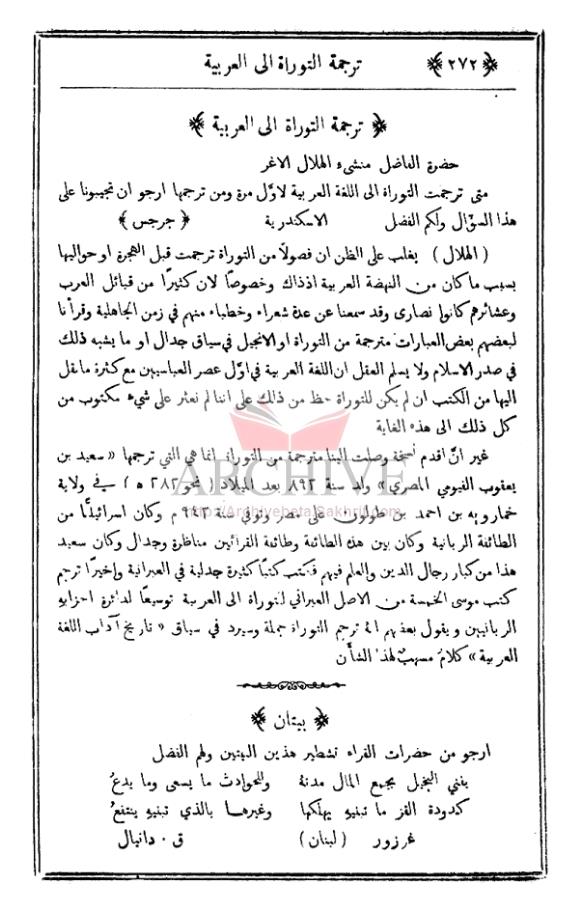 ﴿٢٧٢﴾ ترجمة التوراة الى العربية
﴿ ترجمة التوراة الى العربية ﴾
حضرة الفاضل منشىء الهلال الاغر
متى ترجمت التوراة الى اللغة العربية لاوّل مرة ومن ترجمها ارجو ان تجيبونا على
هذا السوّال ولكم الفضل الاسكندرية ﴿ جرجس ﴾
( الهلال ) يغلب على الظن ان فصولاً من التوراة ترجمت قبل الهجرة او حواليها
بسبب ما كان من النهضة العربية اذذاك وخصوصاً لان كثيرًا من قبائل العرب
وعشائرهم كانوا نصارى وقد سمعنا عن عدة شعراء وخطباء منهم في زمن الجاهلية وقرأنا
لبعضهم بعض العبارات مترجمة من التوراة او الانجيل في سياق جدال او ما يشبه ذلك
في صدر الاسلام ولا يسلم العقل ان اللغة العربية في اوّل عصر العباسيين مع كثرة ما نقل
اليها من الكتب ان لم يكن للتوراة حظ من ذلك على اننا لم نعثر على شيء مكتوب من
كل ذلك الى هذه الغاية
غير انّ اقدم نسخة وصلت الينا مترجمة من التوراة انما هي التي ترجمها « سعيد بن
يعقوب الفيومي المصري » ولد سنة ٨٩٢ بعد الميلاد ( نحو ٢٨٢ ه ) في ولاية
خمارويه بن احمد بن طولون على مصر وتوفي سنة ٩٤٢ م وكان اسرائيليًا من
الطائفة الربانية وكان بين هذه الطائفة وطائفة القرائين مناظرة وجدال وكان سعيد
هذا من كبار رجال الدين والعلم فيهم فكتب كتبًا كثيرة جدلية في العبرانية واخيرًا ترجم
كتب موسى الخمسة من الاصل العبراني للتوراة الى العربية توسيعًا لدائرة احزابهِ
الربانيين ويقول بعضهم انه ترجم التوراة جملة وسيرد في سياق « تاريخ آداب اللغة
العربية » كلامٌ مسهبٌ لهذا الشأن
ARCHIVE
http://Archivebeta.Sakhrit.com
﴿ بيتان ﴾
ارجو من حضرات القراء تشطير هذين البيتين ولهم الفضل
يفني البخيل بجمع المال مدتهُ وللحوادث ما يسعى وما يدعُ
كدودة القز ما تبنيهِ يهلكها وغيرهــا بالذي تبنيهِ ينتفعُ
غرزور ( لبنان ) ق . دانيال